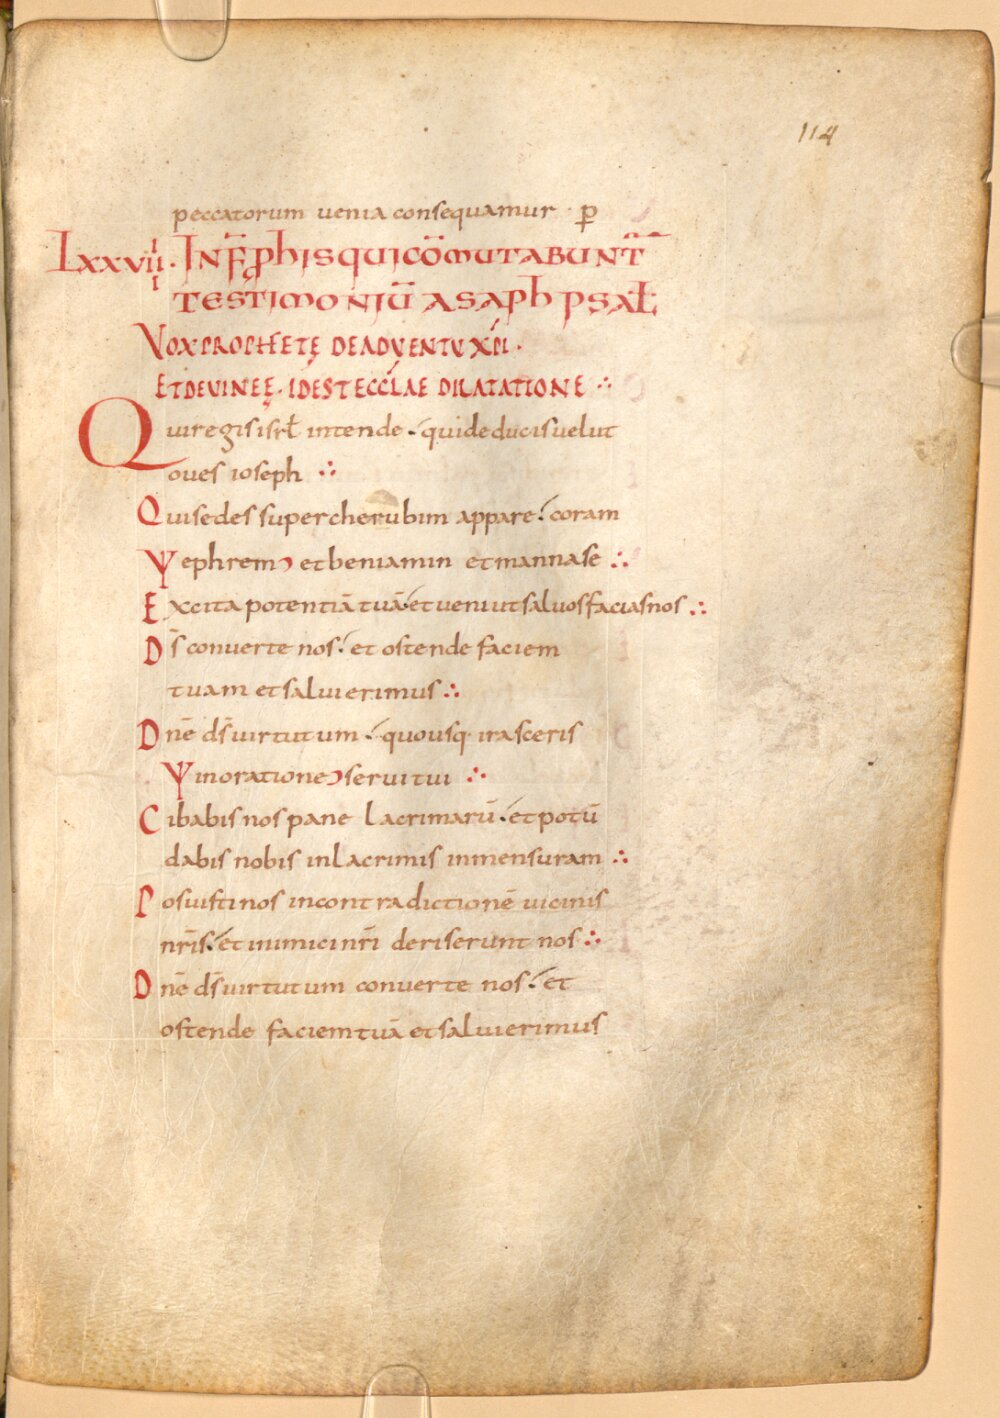 114
peccatorum uenia consequamur · p̄
Lxxviiii · IN FĪ P his qui cōmutabunt̄
testimoniū asaph psał
Vox prophetę de aduentu xp̄i ·
et de uineę · id est eccl̄ae dilatatione ∴
Qui regis isrł intende · qui deducis uelut
oues ioseph ∴
Qui sedes super cherubim appare · coram
ephrem et beniamin et mannase ∴
Excita potentiā tuā · et ueni ut saluos facias nos ∴
Ds̄ conuerte nos · et ostende faciem
tuam et salui erimus ∴
Dnē ds̄ uirtutum · quousq· irasceris
in oratione serui tui ∴
Cibabis nos pane lacrimarū · et potū
dabis nobis in lacrimis in mensuram ∴
Posuisti nos in contradictionē uicinis
nr̄is · et inimici nr̄i deriserunt nos ∴
Dnē ds̄ uirtutum conuerte nos · et
ostende faciem tuā et salui erimus